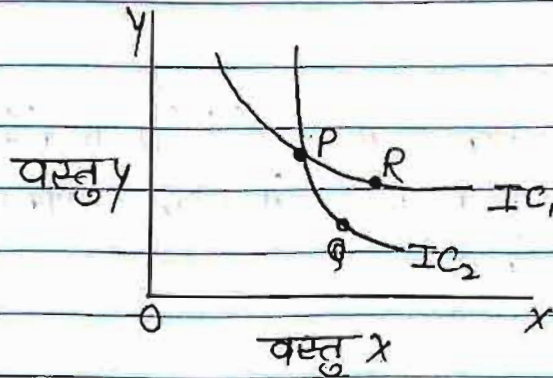 Y
P
R
वस्तु y
IC₁
Q
IC₂
O
X
वस्तु X